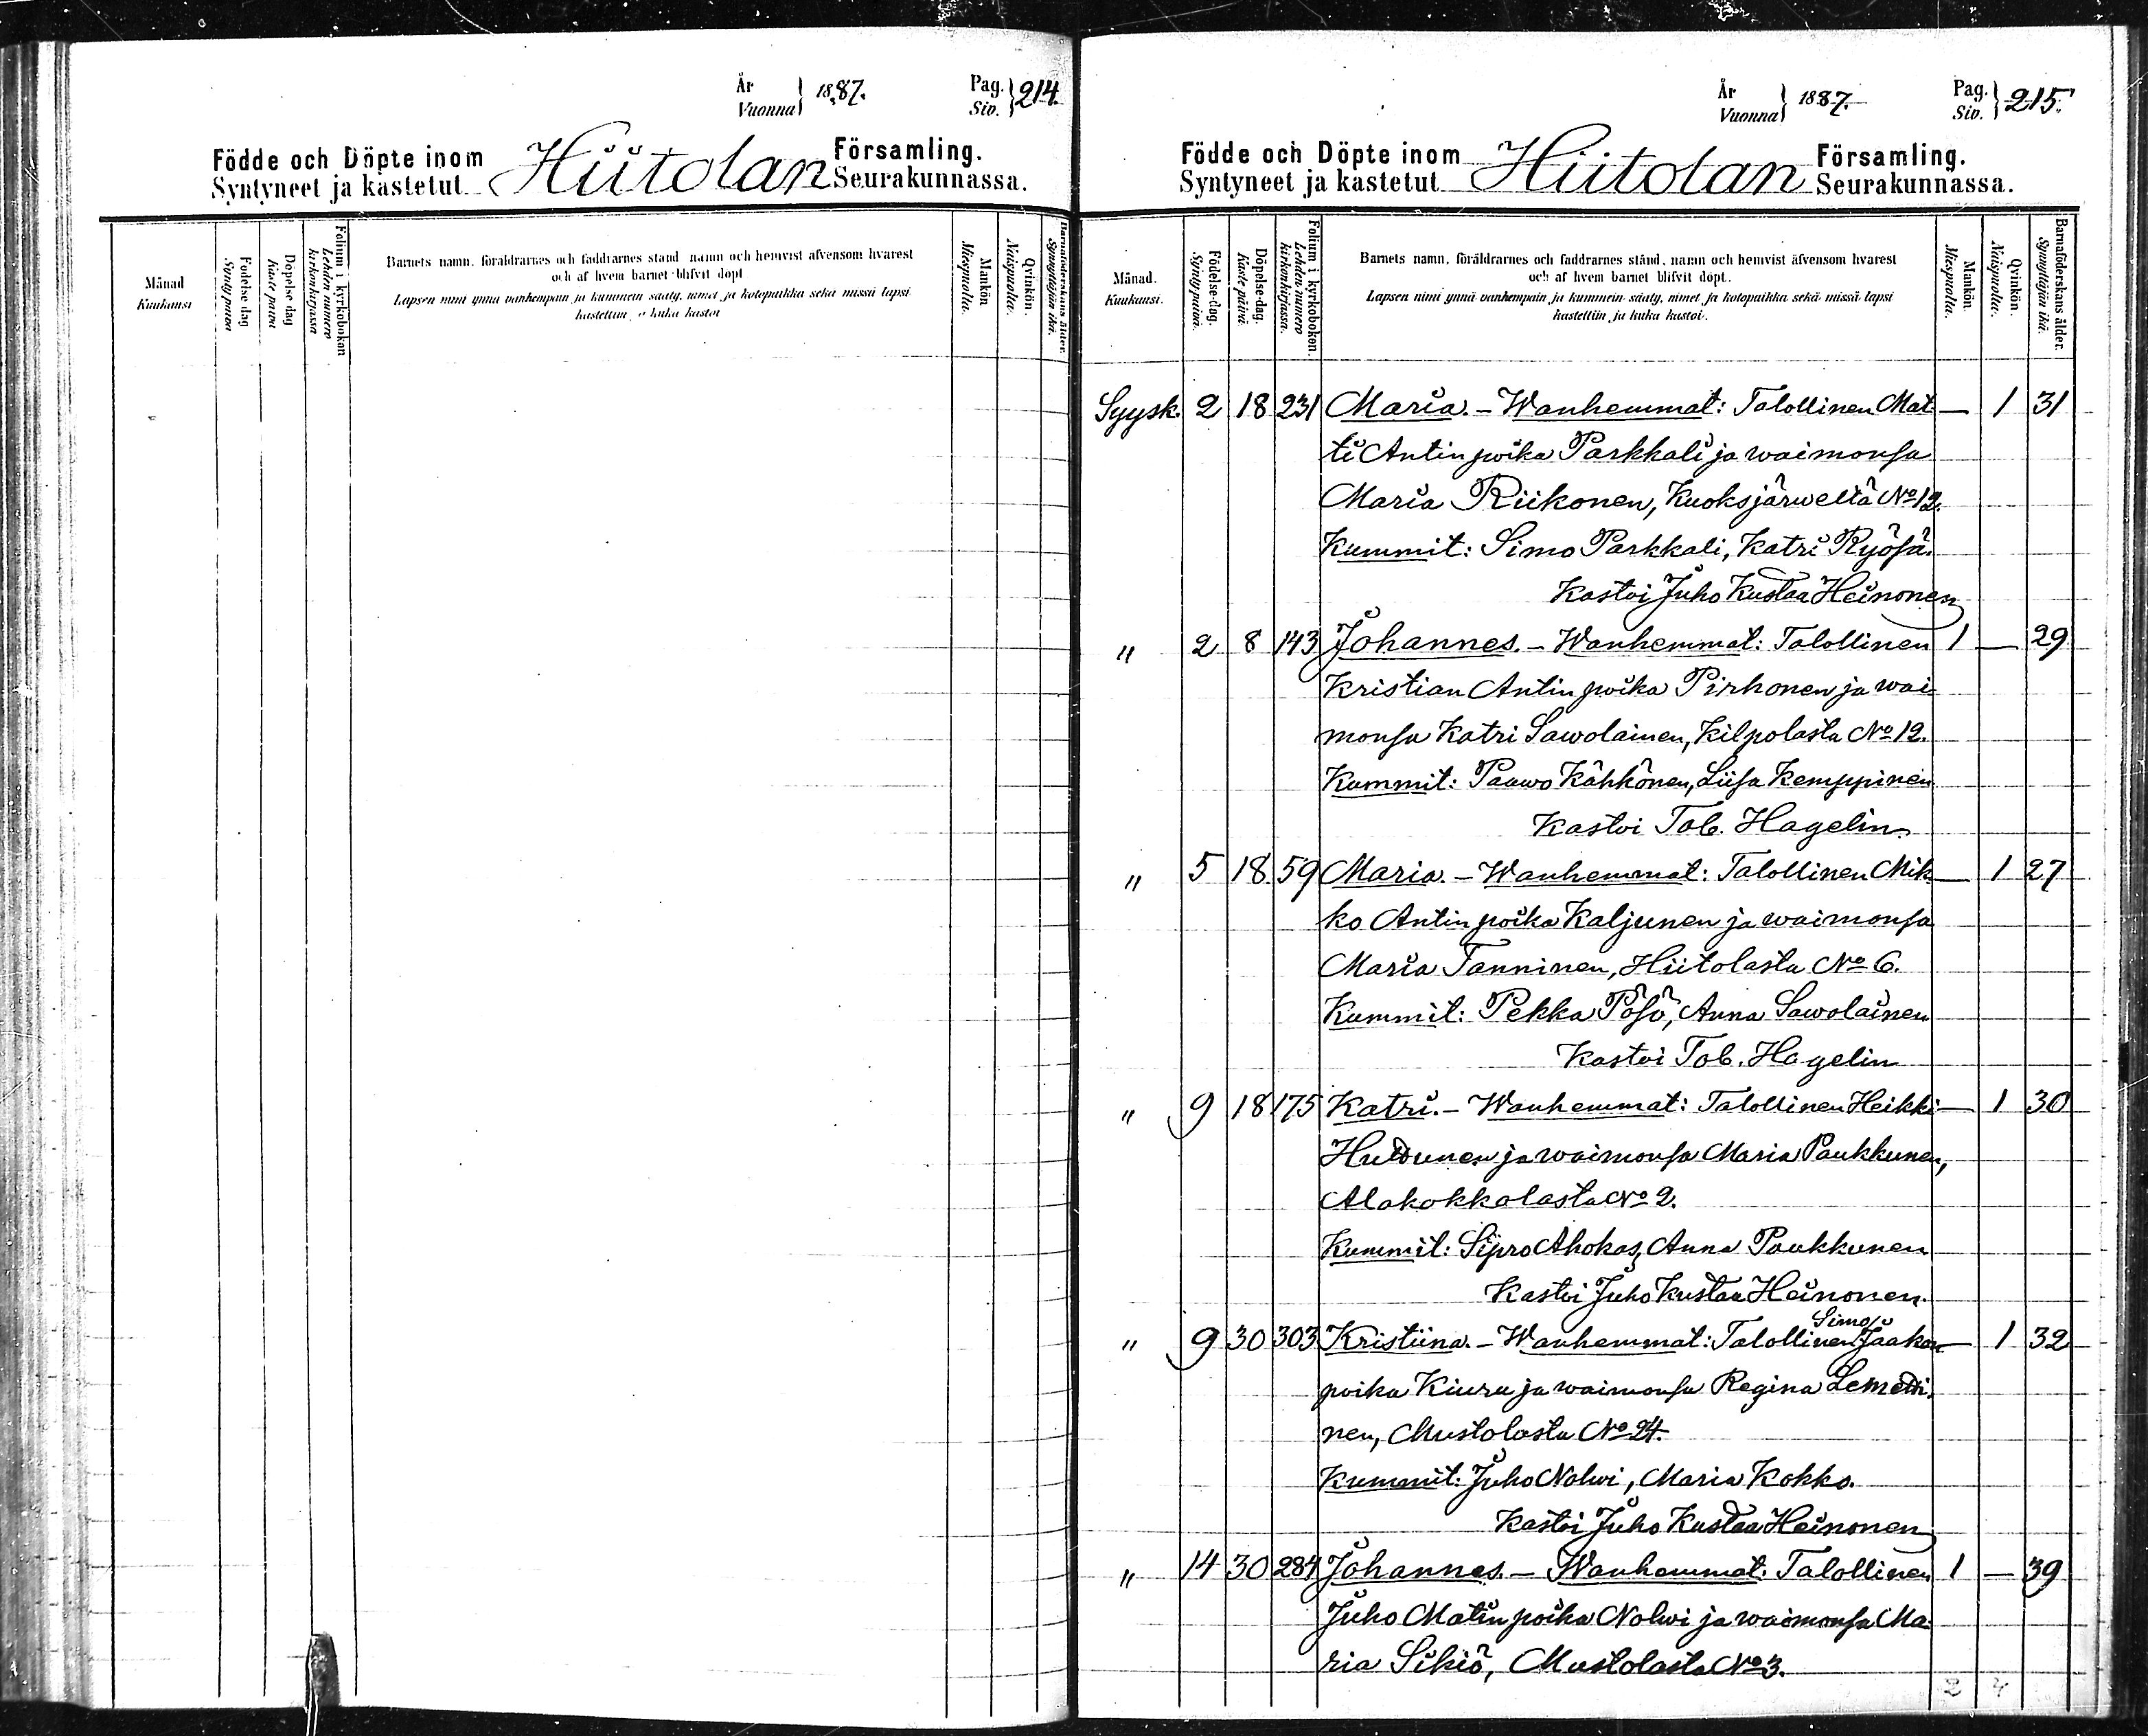 År
Vuonna } 1887.
Pag.
Siv. } 214.
Födde och Döpte inom
Syntyneet ja kastetut Hiitolan Församling.
Seurakunnassa.
Månad
Kuukausi
Födelse dag
Syntypäivä
Döpelse dag
Kaste päivä
Folium i kyrkoboken
Lehden numero
kirkonkirjassa
Barnets namn, föräldrarnes och faddrarnes stånd namn och hemvist äfvensom hvarest
och af hvem barnet blifvit döpt
Lapsen nimi ynnä vanhempain ja kummein sääty, nimet ja kotopaikka sekä missä lapsi
kastettiin ja kuka kastoi
Mankön
Miespuolia.
Qvinkön.
Naispuolia.
Barnaföderskans ålder.
Synnyttäjän ikä.
År
Vuonna } 1887.
Pag.
Siv. } 215.
Födde och Döpte inom
Syntyneet ja kastetut Hiitolan Församling.
Seurakunnassa.
Månad.
Kuukausi.
Födelse-dag.
Syntypäivä.
Döpelse-dag.
Kaste päivä.
Folium i kyrkoboken.
Lehden numero
kirkonkirjassa.
Barnets namn, föräldrarnes och faddrarnes stånd, namn och hemvist äfvensom hvarest
och af hvem barnet blifvit döpt.
Lapsen nimi ynnä vanhempain ja kummein sääty, nimet ja kotopaikka sekä missä lapsi
kastettiin ja kuka kastoi.
Mankön.
Miespuolia.
Qvinkön.
Naispuolia.
Barnaföderskans ålder.
Synnyttäjän ikä.
Syysk. 2 18 231 Maria. - Wanhemmat: Talollinen Mat — 1 31
ti Antin poika Parkkali ja waimonsa
Maria Riikonen, Kuoksjärweltä No 12.
Kummit: Simo Parkkali, Katri Ryösä.
Kastoi Juho Kustaa Heinonen
" 2 8 143 Johannes. - Wanhemmat: Talollinen 1 — 29
Kristian Antin poika Pirhonen ja wai
monsa Katri Sawolainen, Kilpolasta No 12.
Kummit: Paawo Kähkönen, Liisa Kemppinen
Kastoi Tob. Hagelin.
" 5 18 59 Maria. - Wanhemmat: Talollinen Mik — 1 27
ko Antin poika Kaljunen ja waimonsa
Maria Tanninen, Hiitolasta No 6.
Kummit: Pekka Pösö, Anna Sawolainen
Kastoi Tob. Hagelin
" 9 18 175 Katri. - Wanhemmat: Talollinen Heikki — 1 30
Huttunen ja waimonsa Maria Paukkunen,
Alakokkolasta No 2.
Kummit: Sipro Ahokas, Anna Paukkunen
Kastoi Juho Kustaa Heinonen.
Simo
" 9 30 303 Kristiina. - Wanhemmat: Talollinen Jaakon — 1 32
poika Kiuru ja waimonsa Regina Lemetti
nen, Mustolasta No 24.
Kummit: Juho Nolwi, Maria Kokko.
Kastoi Juho Kustaa Heinonen
" 14 30 284 Johannes. - Wanhemmat: Talollinen 1 — 39
Juho Matin poika Nolwi ja waimonsa Ma
ria Sikiö, Mustolasta No 3.
2 4